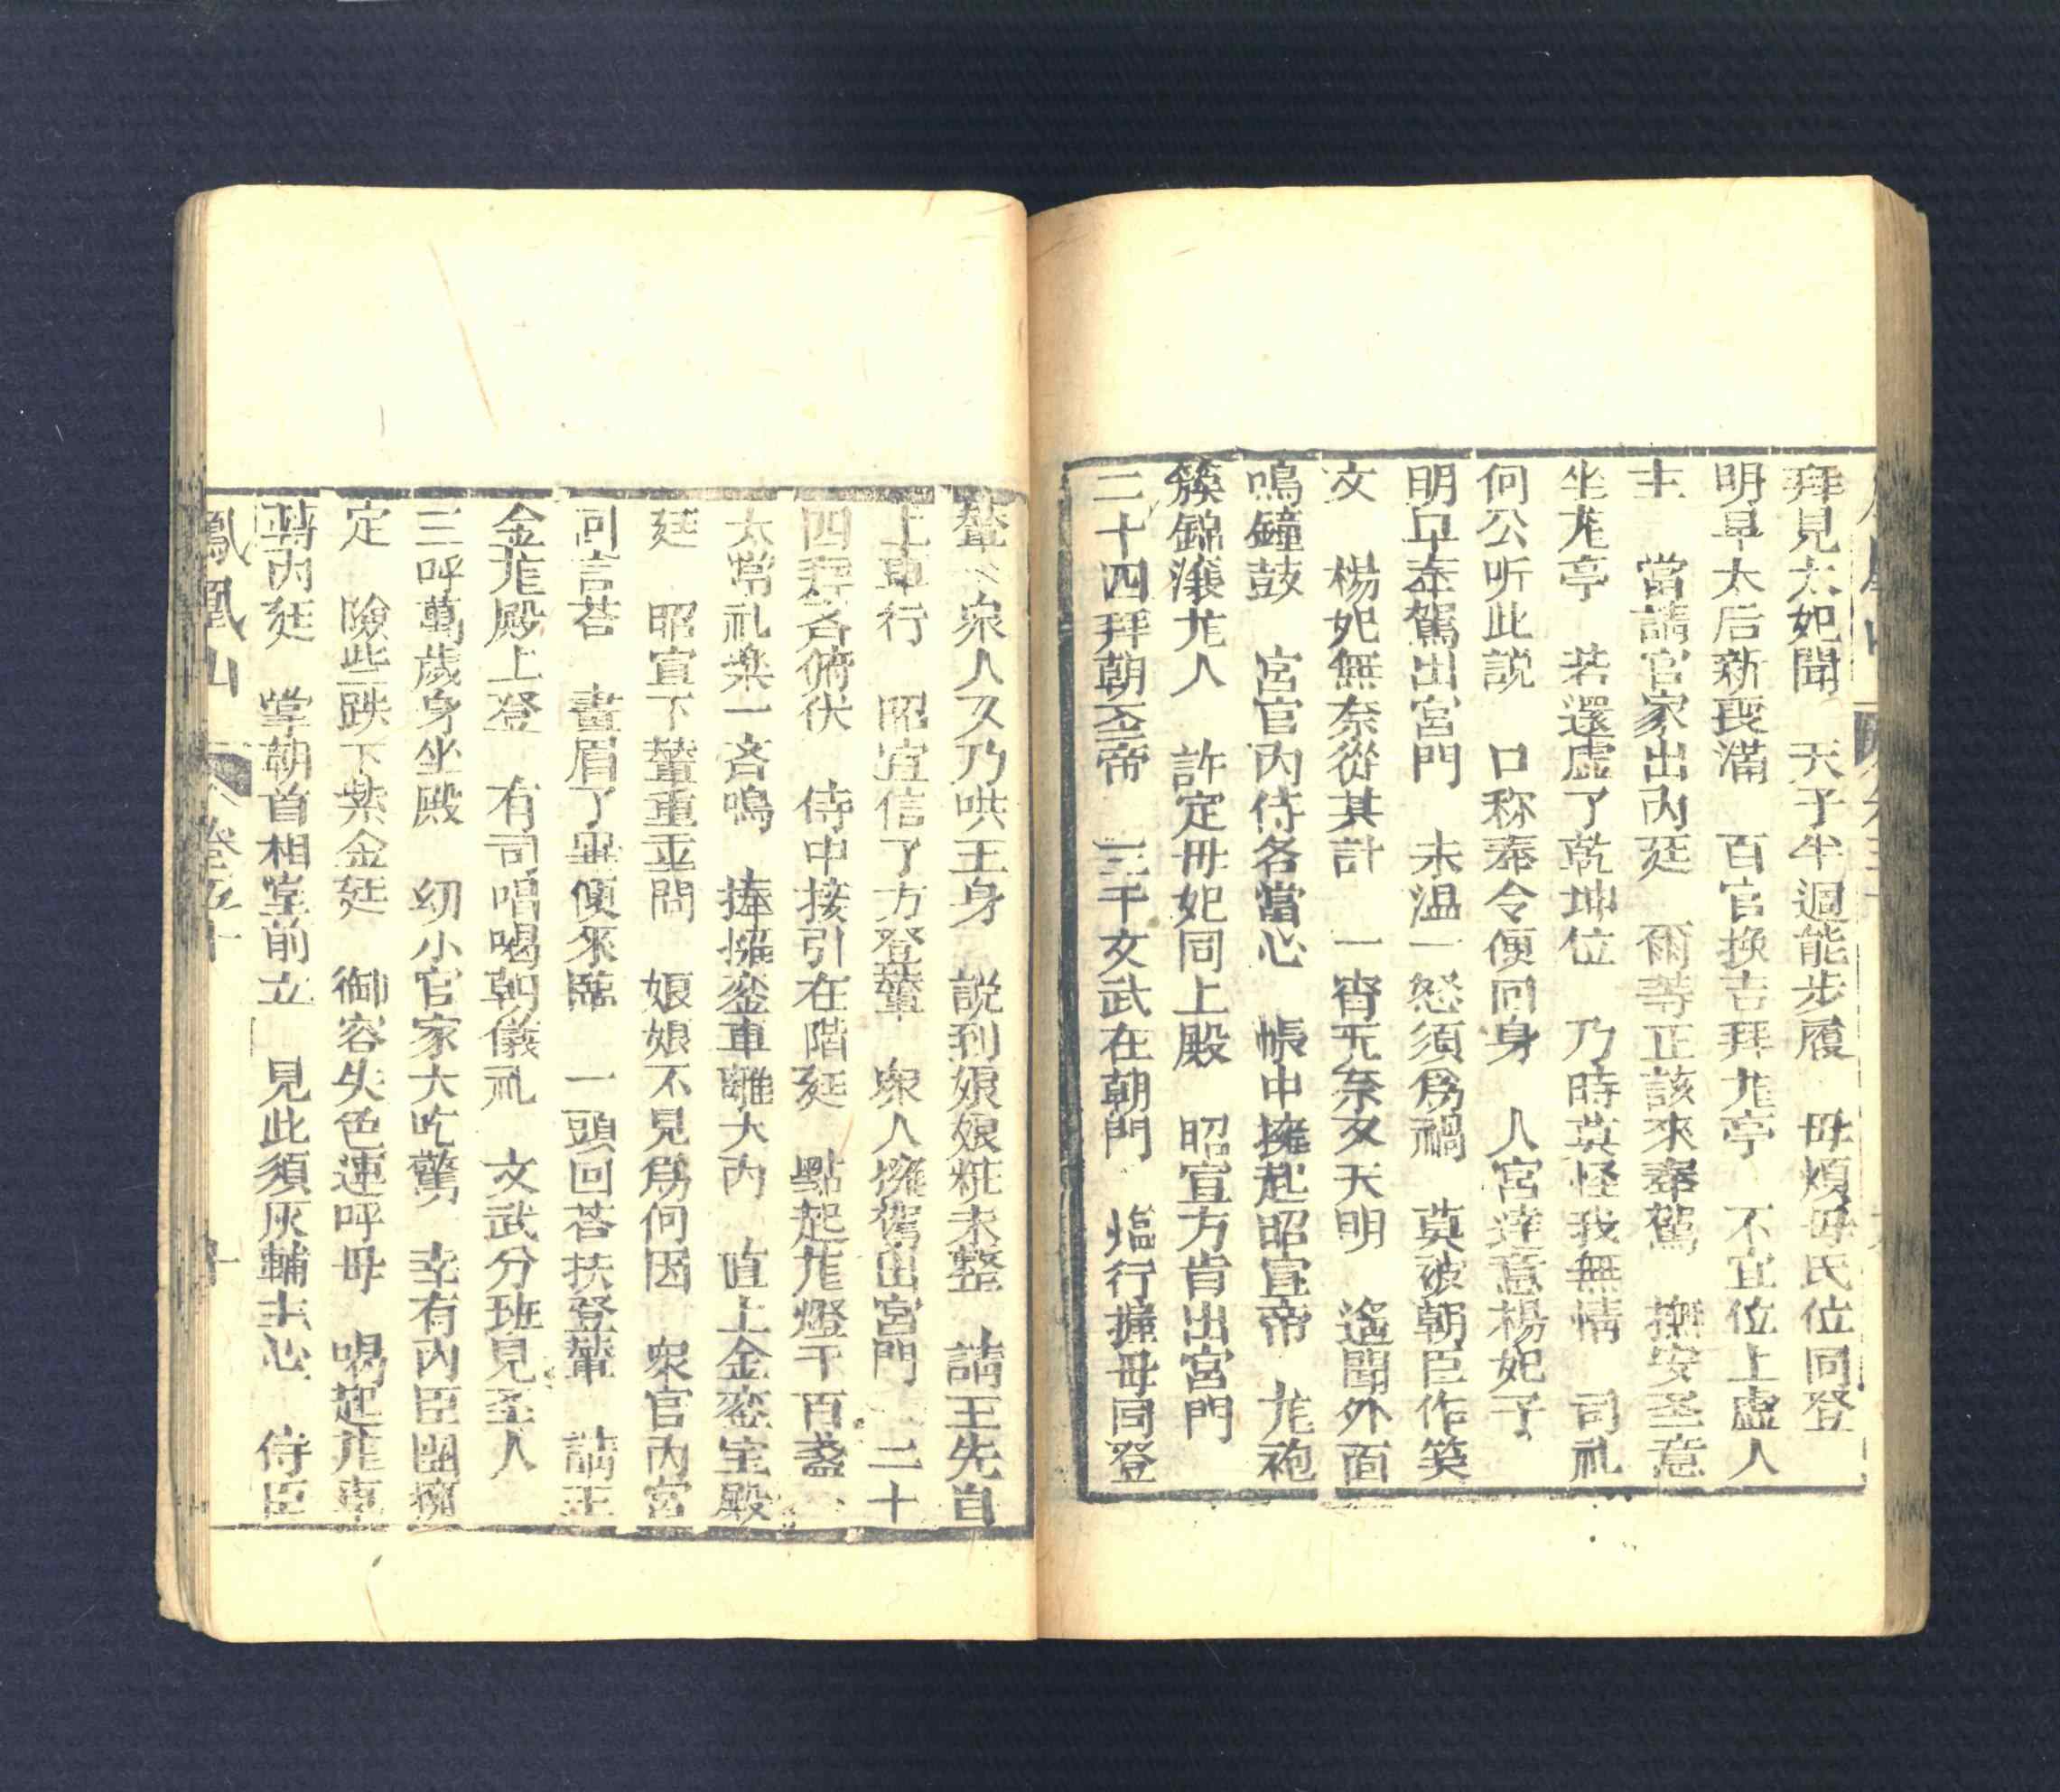 拜見太妃聞　天子半週能步履　毋煩母氏位同登
明早太后新喪滿　百官換吉拜尨亭　不宜位上虛人
主　當請官家出內廷　爾等正該來奉駕　撫安圣意
坐尨亭　若還虛了乾坤位　乃時莫怪我無情　司礼
何公听此説　口称奉令便回身　人宮達意楊妃了
明早奉駕出宮門　未温一怒須爲禍　莫被朝臣作笑
文　楊妃無奈從其計　一宵无奈又天明　遙聞外面
鳴鐘鼓　宮官內侍各當心　帳中擁起昭宣帝　尨袍
簇錦滚尨人　許定母妃同上殿　昭宣方肯出宮門
二十四拜朝圣帝　三千文武在朝門　臨行握母同登
輦　衆人又乃哄王身　説到娘娘粧未整　請王先自
上車行　昭宣信了方登輦　衆人擁駕出宮門　二十
四拜各俯伏　侍中接引在階廷　點起尨燈千百盞
太常礼楽一斉鳴　捧擁鸾車離大內　直上金鸾宝殿
廷　昭宣下輦重重問　娘娘不見爲何因　衆官內宮
回言荅　畫眉了畢便來臨　一頭回荅扶登輦　請王
金尨殿上登　有司唱喝朝儀礼　文武分班見圣人
三呼萬歲身坐殿　幼小官家大吃驚　幸有內臣團擁
定　險些跌下紫金廷　御容失色連呼母　喝起尨車
轉內廷　掌朝首相堂前立　見此須灰輔主心　侍臣
鳳凰山　卷五十